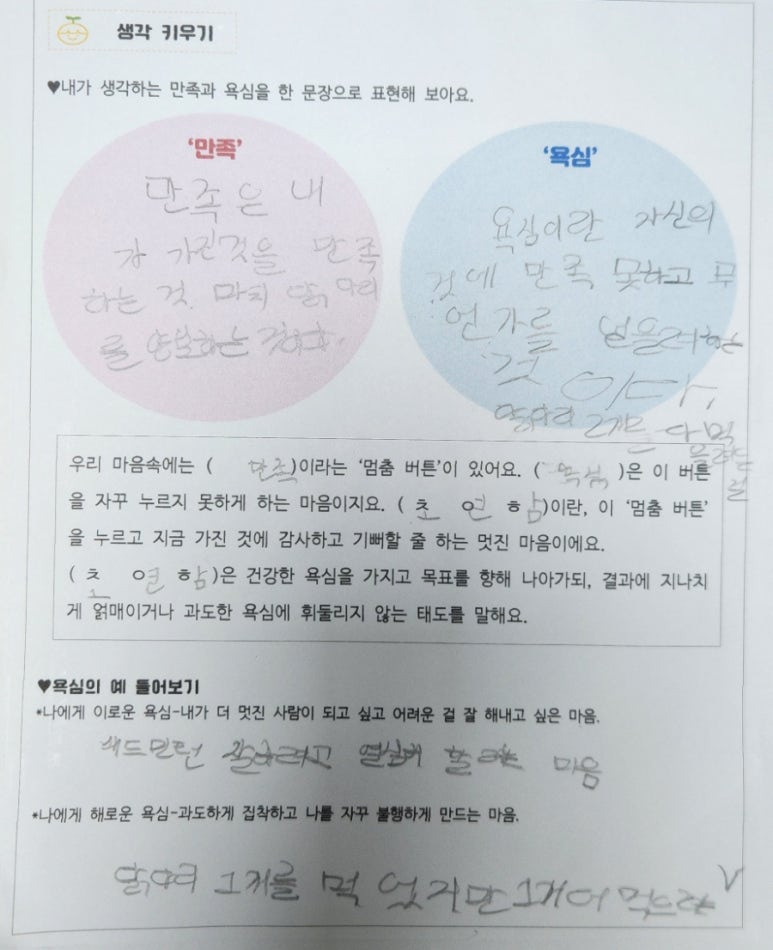 생각 키우기
♥내가 생각하는 만족과 욕심을 한 문장으로 표현해 보아요.
'만족'
만족은 내
가 가진것을 만족
하는 것. 마치 닭 다리
를 양보하는 것이다.
'욕심'
욕심이란 자신의
것에 만족 못하고 무
언가를 얻을려하는
것 이다.
닭다리 2개를 다 먹
을려는
우리 마음속에는 ( 만족)이라는 '멈춤 버튼'이 있어요. ( 욕심 )은 이 버튼
을 자꾸 누르지 못하게 하는 마음이지요. ( 초 연 ㅎ함)이란, 이 '멈춤 버튼'
을 누르고 지금 가진 것에 감사하고 기뻐할 줄 하는 멋진 마음이에요.
( 초 연 ㅎ함)은 건강한 욕심을 가지고 목표를 향해 나아가되, 결과에 지나치
게 얽매이거나 과도한 욕심에 휘둘리지 않는 태도를 말해요.
♥욕심의 예 들어보기
*나에게 이로운 욕심-내가 더 멋진 사람이 되고 싶고 어려운 걸 잘 해내고 싶은 마음.
배드민턴 잘하려고 열심히 할려는 마음
*나에게 해로운 욕심-과도하게 집착하고 나를 자꾸 불행하게 만드는 마음.
2개를 먹 었지만 먹으려